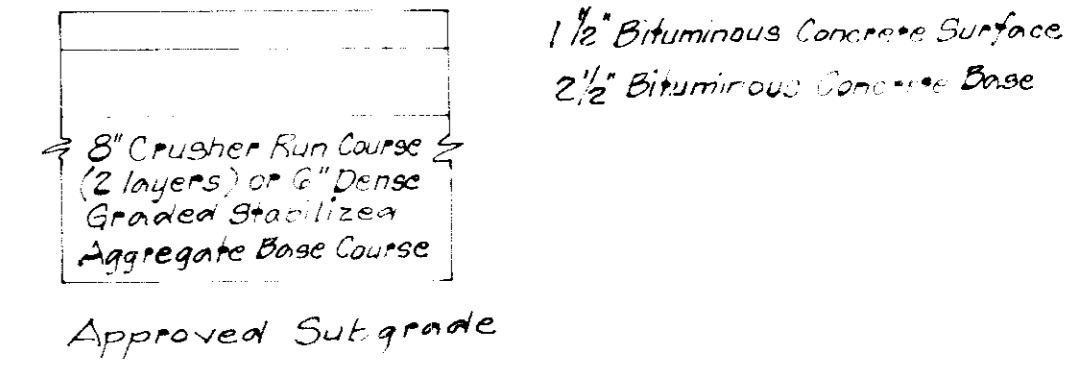 1 1/2" Bituminous Concrete Surface
2 1/2" Bituminous Concrete Base
8" Crusher Run Course
(2 layers) or 6" Dense
Graded Stabilized
Aggregate Base Course
Approved Subgrade